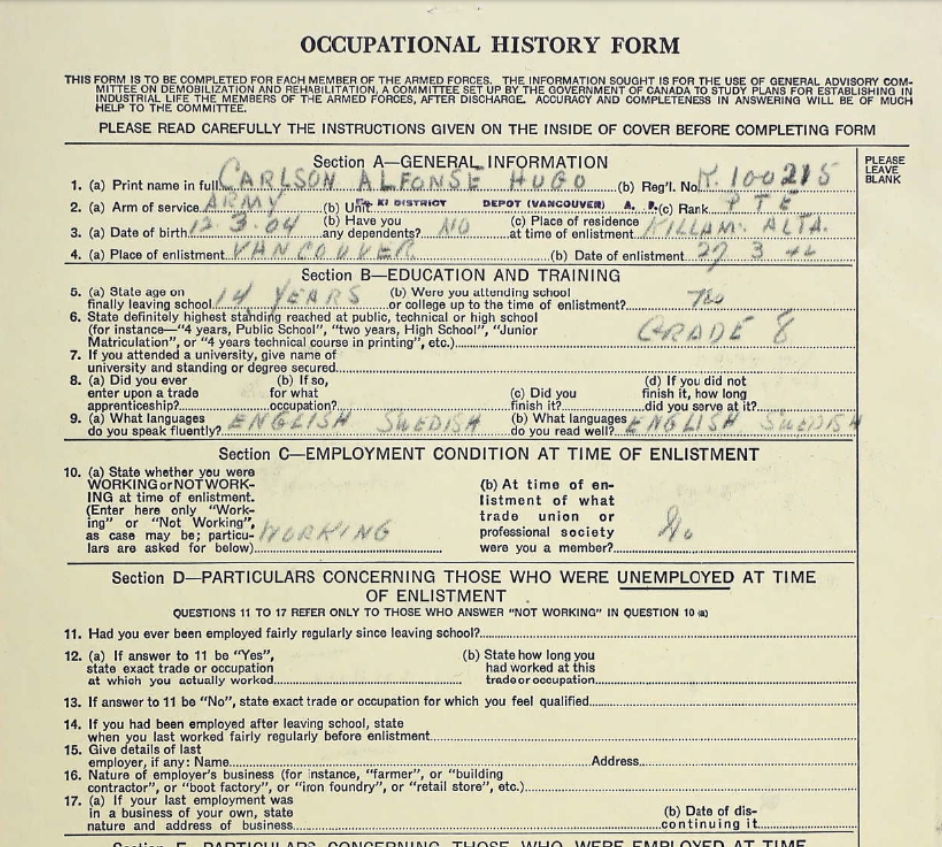 OCCUPATIONAL HISTORY FORM
THIS FORM IS TO BE COMPLETED FOR EACH MEMBER OF THE ARMED FORCES. THE INFORMATION SOUGHT IS FOR THE USE OF GENERAL ADVISORY COM-
MITTEE ON DEMOBILIZATION AND REHABILITATION, A COMMITTEE SET UP BY THE GOVERNMENT OF CANADA TO STUDY PLANS FOR ESTABLISHING IN
INDUSTRIAL LIFE THE MEMBERS OF THE ARMED FORCES, AFTER DISCHARGE. ACCURACY AND COMPLETENESS IN ANSWERING WILL BE OF MUCH
HELP TO THE COMMITTEE.
PLEASE READ CAREFULLY THE INSTRUCTIONS GIVEN ON THE INSIDE OF COVER BEFORE COMPLETING FORM
PLEASE
LEAVE
BLANK
Section A—GENERAL INFORMATION
1. (a) Print name in full CARLSON ALFONSE HUGO (b) Reg'l. No. K.100215
2. (a) Arm of service ARMY (b) Unit DISTRICT DEPOT (VANCOUVER) (c) Rank PTE
3. (a) Date of birth 12.3.04 (b) Have you any dependents? NO (c) Place of residence at time of enlistment KILLAM. ALTA.
4. (a) Place of enlistment VANCOUVER (b) Date of enlistment 27 3
Section B—EDUCATION AND TRAINING
5. (a) State age on finally leaving school 14 YEARS (b) Were you attending school or college up to the time of enlistment? No
6. State definitely highest standing reached at public, technical or high school
(for instance—"4 years, Public School", "two years, High School", "Junior
Matriculation", or "4 years technical course in printing", etc.) GRADE 8
7. If you attended a university, give name of
university and standing or degree secured
8. (a) Did you ever enter upon a trade apprenticeship? (b) If so, for what occupation? (c) Did you finish it? (d) If you did not finish it, how long did you serve at it?
9. (a) What languages do you speak fluently? ENGLISH SWEDISH (b) What languages do you read well? ENGLISH SWEDISH
Section C—EMPLOYMENT CONDITION AT TIME OF ENLISTMENT
10. (a) State whether you were
WORKING or NOT WORK-
ING at time of enlistment.
(Enter here only "Work-
ing" or "Not Working",
as case may be; particu-
lars are asked for below) WORKING
(b) At time of en-
listment of what
trade union or
professional society
were you a member? No
Section D—PARTICULARS CONCERNING THOSE WHO WERE UNEMPLOYED AT TIME
OF ENLISTMENT
QUESTIONS 11 TO 17 REFER ONLY TO THOSE WHO ANSWER "NOT WORKING" IN QUESTION 10 (a)
11. Had you ever been employed fairly regularly since leaving school?
12. (a) If answer to 11 be "Yes",
state exact trade or occupation
at which you actually worked
(b) State how long you
had worked at this
trade or occupation
13. If answer to 11 be "No", state exact trade or occupation for which you feel qualified
14. If you had been employed after leaving school, state
when you last worked fairly regularly before enlistment
15. Give details of last
employer, if any: Name Address
16. Nature of employer's business (for instance, "farmer", or "building
contractor", or "boot factory", or "iron foundry", or "retail store", etc.)
17. (a) If your last employment was
in a business of your own, state
nature and address of business
(b) Date of dis-
continuing it